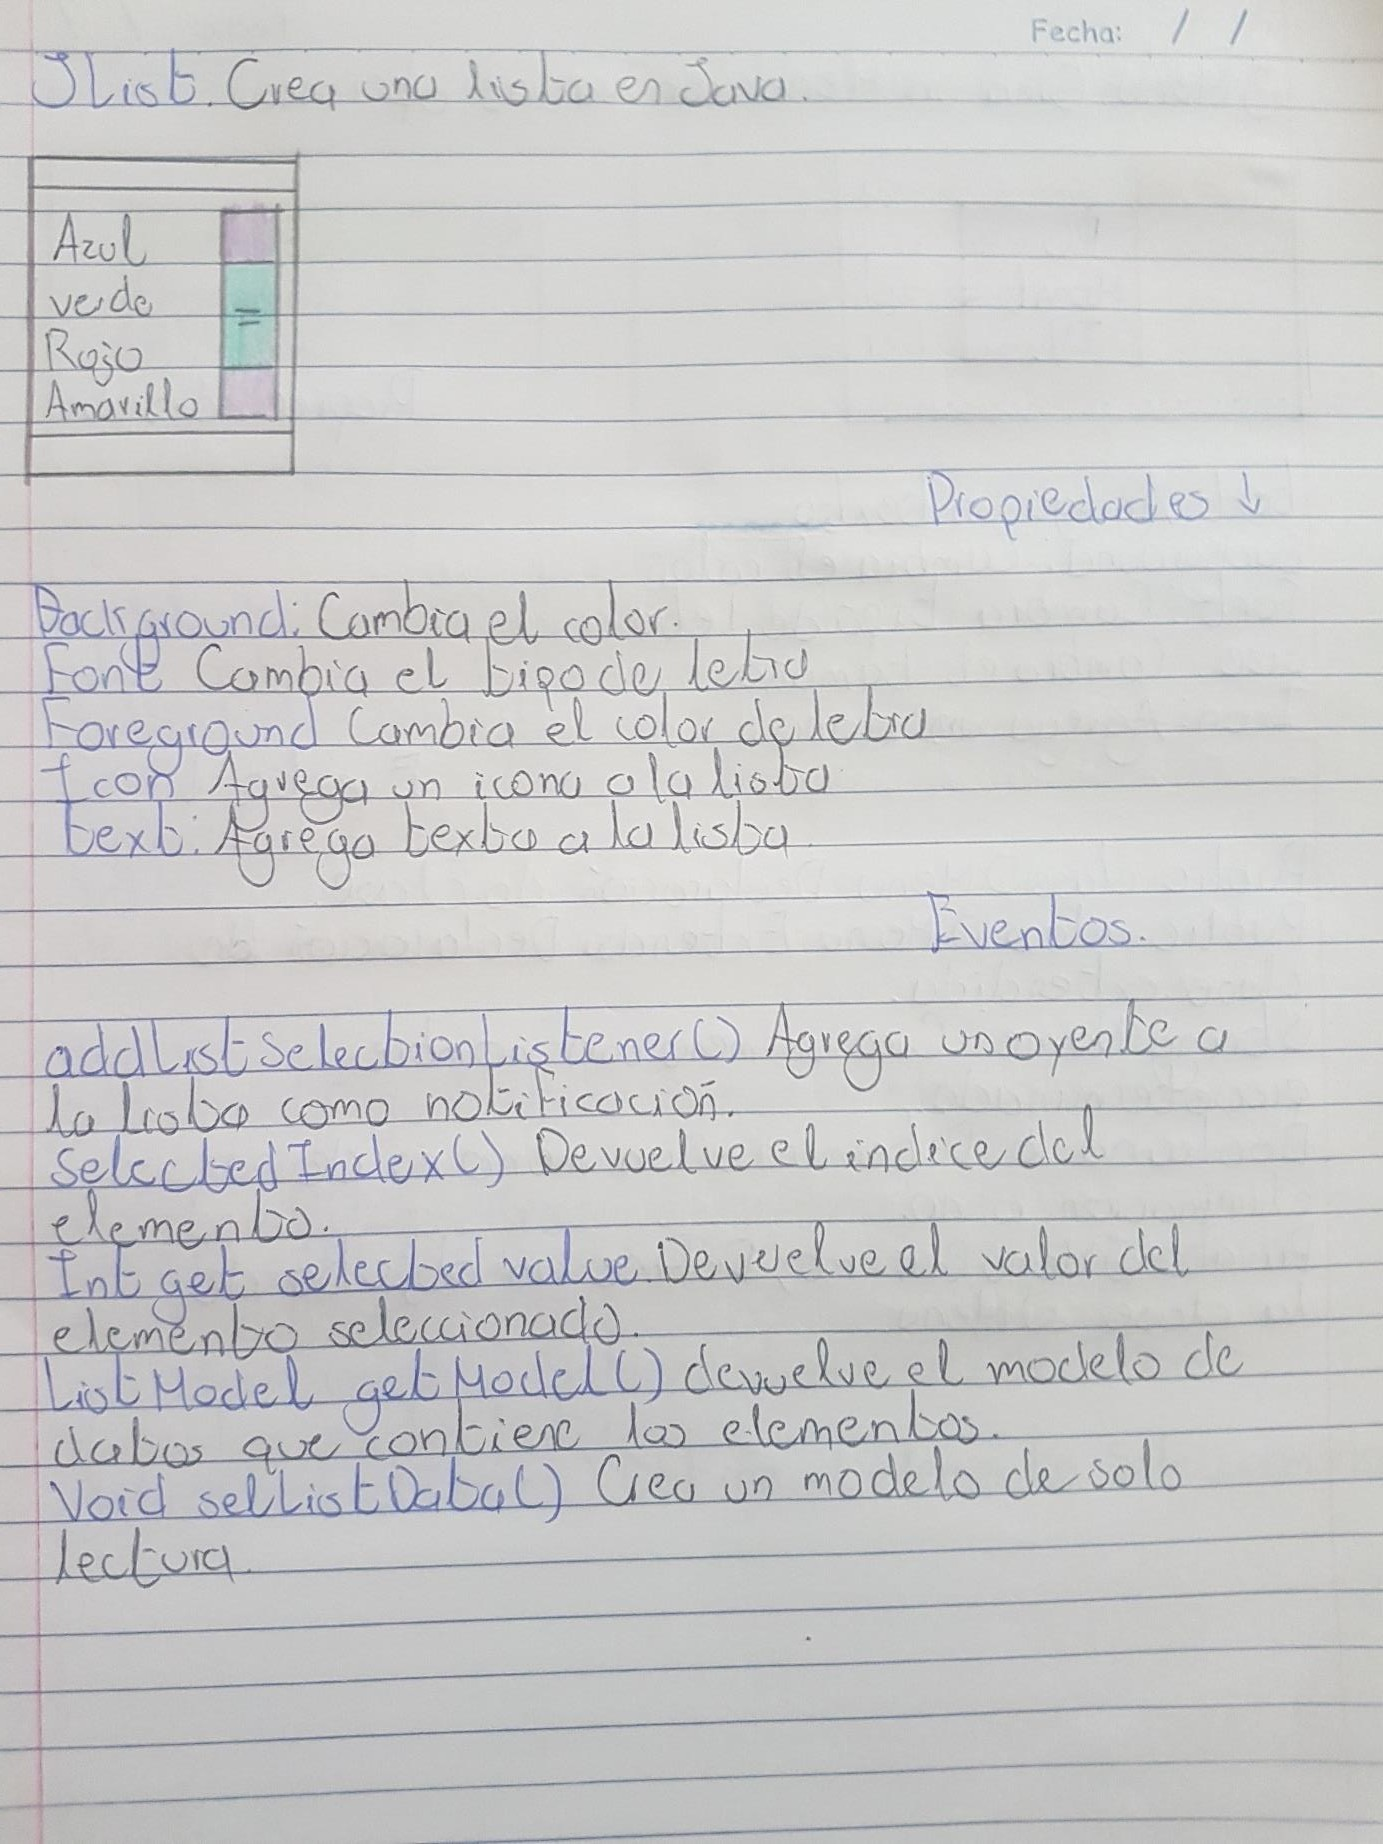 Fecha: / /
JList. Crea una lista en Java.
Azul
verde
Rojo
Amarillo
=
Propiedades ↓
Background: Cambia el color.
Font Cambia el tipo de letra
Foreground Cambia el color de letra
Icon Agrega un icono a la lista
text: Agrega texto a la lista
Eventos.
addListSelectionListener() Agrega un oyente a
la lista como notificación.
SelectedIndex() Devuelve el indice del
elemento.
Int get selected value Devuelve el valor del
elemento seleccionado.
ListModel getModel() devuelve el modelo de
datos que contiene los elementos.
Void setListData() Crea un modelo de solo
lectura.